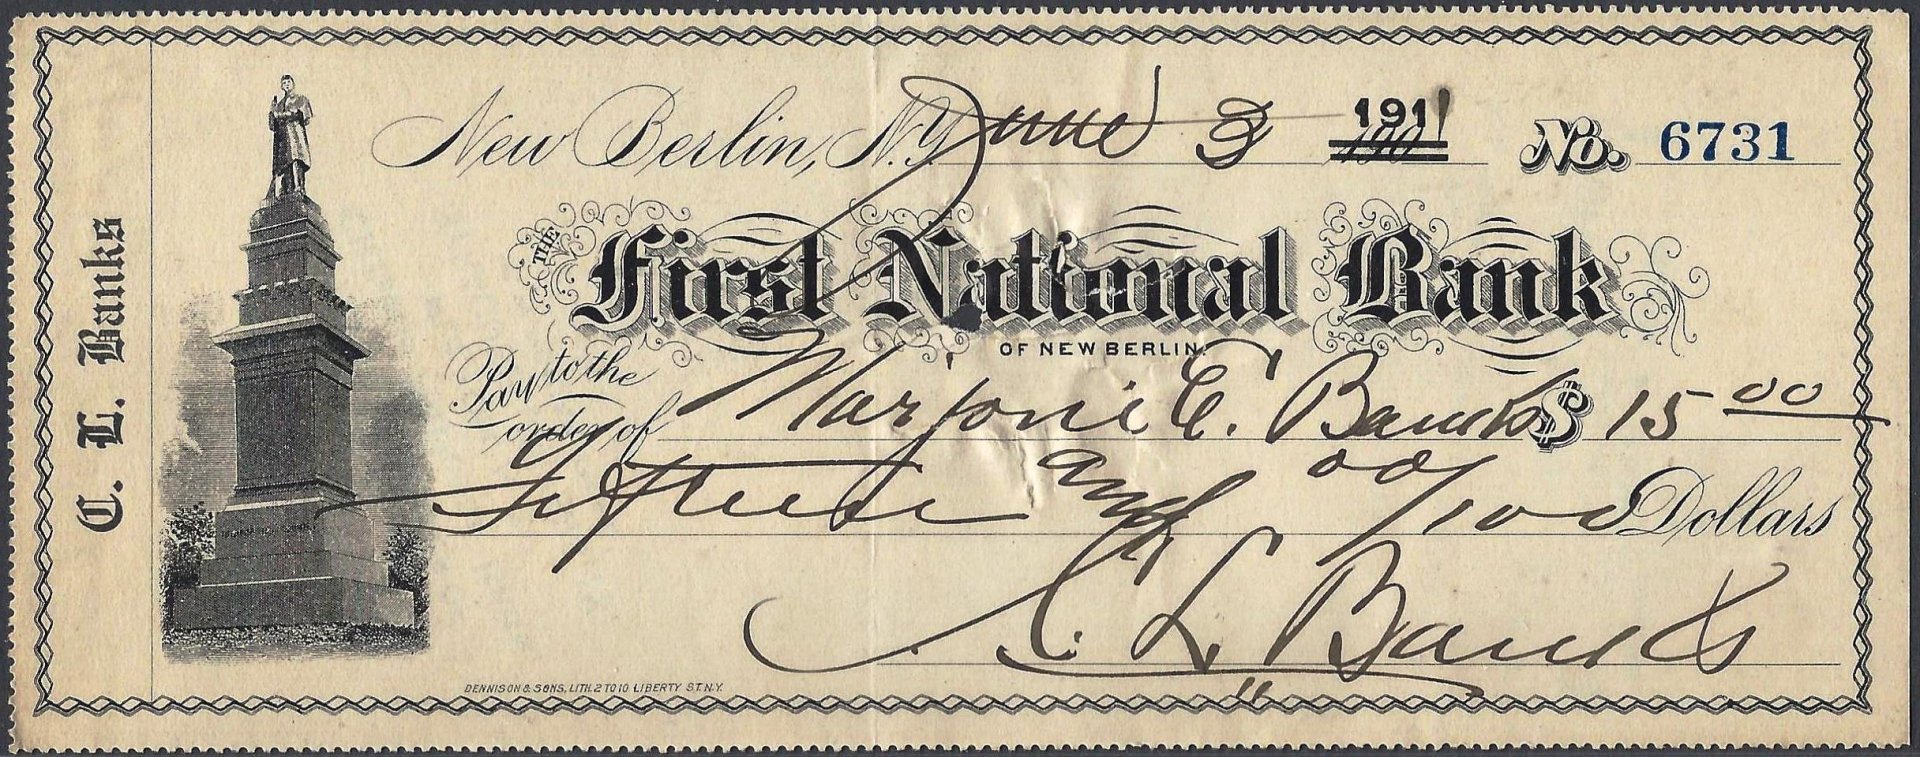 C. L. Banks
New Berlin, N.Y. June 3 1911 190 No. 6731
THE First National Bank
OF NEW BERLIN.
Pay to the order of Marjorie E. Banks $ 15 00
Fifteen and 00/100 Dollars
C. L. Banks
DENNISON & SONS, LITH. 2 TO 10 LIBERTY ST. N.Y.